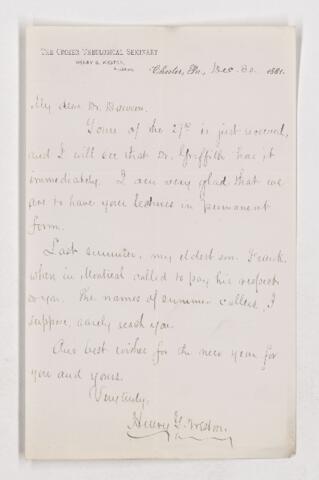 THE CROZER THEOLOGICAL SEMINARY
HENRY G. WESTON,
Chester, Pa., Dec. 30. 1881.
My dear Dr. Dawson.
Yours of the 27th is just received,
and I will see that Dr. Griffith has it
immediately. I am very glad that we
are to have your lectures in permanent
form.
Last summer, my eldest son, Frank,
when in Montreal called to pay his respects
to you. The names of summer callers, I
suppose, rarely reach you.
Our best wishes for the new year for
you and yours.
Very truly,
Henry G. Weston.